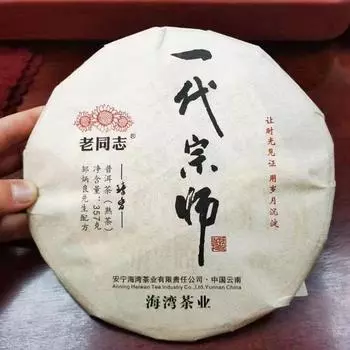 一代宗师
让时光见证 用岁月沉淀
老同志®
普洱茶（熟茶）
净含量：357克
邹炳良先生配方
安宁海湾茶业有限责任公司·中国云南
Anning Haiwan Tea Industry Co.,Ltd.Yunnan China
海湾茶业